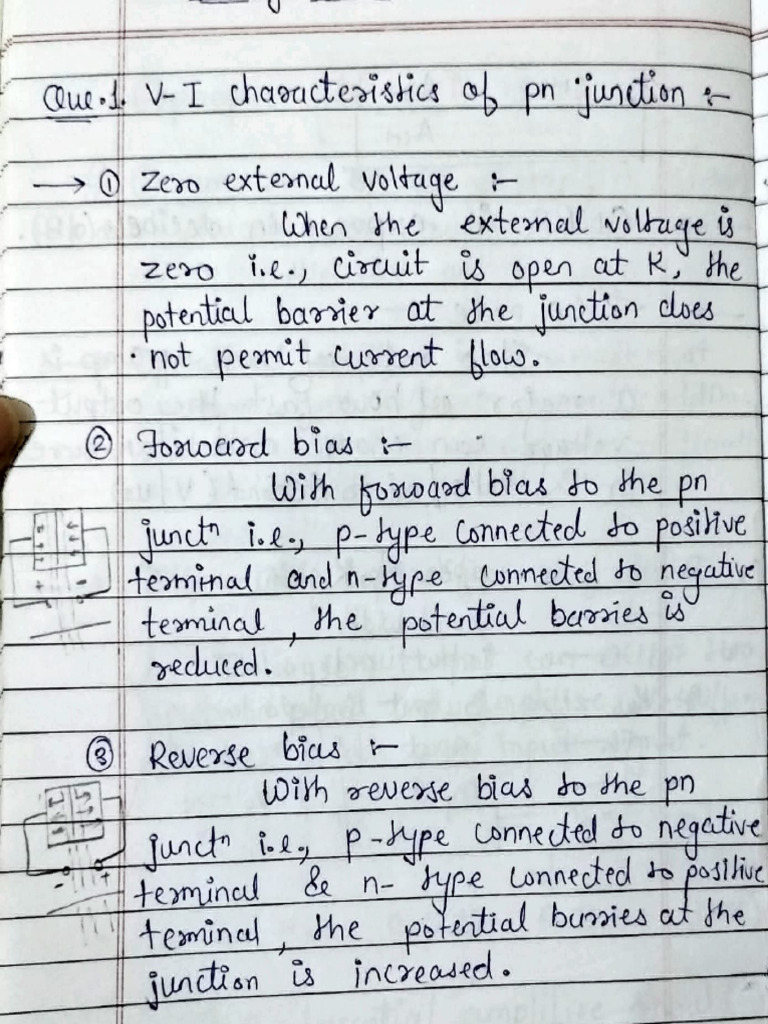 Que.1. V-I characteristics of pn junction :-
→ ① Zero external voltage :-
When the external voltage is
zero i.e., circuit is open at K, the
potential barrier at the junction does
not permit current flow.
② Forward bias :-
With forward bias to the pn
junctⁿ i.e., p-type connected to positive
terminal and n-type connected to negative
terminal, the potential barries is
reduced.
③ Reverse bias :-
With reverse bias to the pn
junctⁿ i.e., p-type connected to negative
terminal & n- type connected to positive
terminal, the potential barries at the
junction is increased.
- +